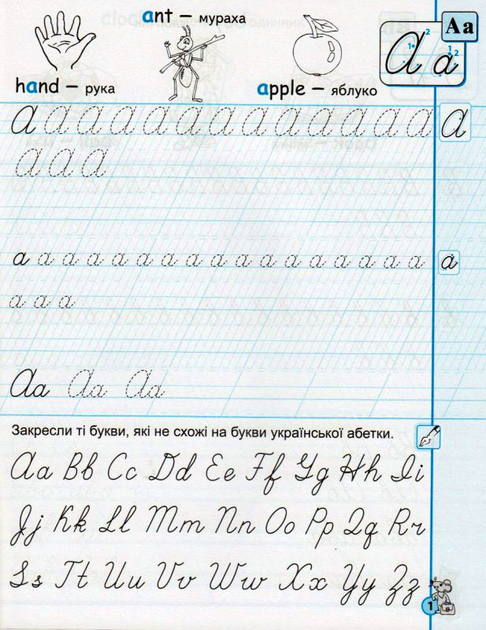 ant – мураха
Aa
hand – рука
apple – яблуко
A a
A A A A A A A A A A A A A A A
A A A
a a a a a a a a a a a a a a a a a a
a a a
Aa Aa Aa
Закресли ті букви, які не схожі на букви української абетки.
Aa Bb Cc Dd Ee Ff Gg Hh Ii
Jj Kk Ll Mm Nn Oo Pp Qq Rr
Ss Tt Uu Vv Ww Xx Yy Zz
1